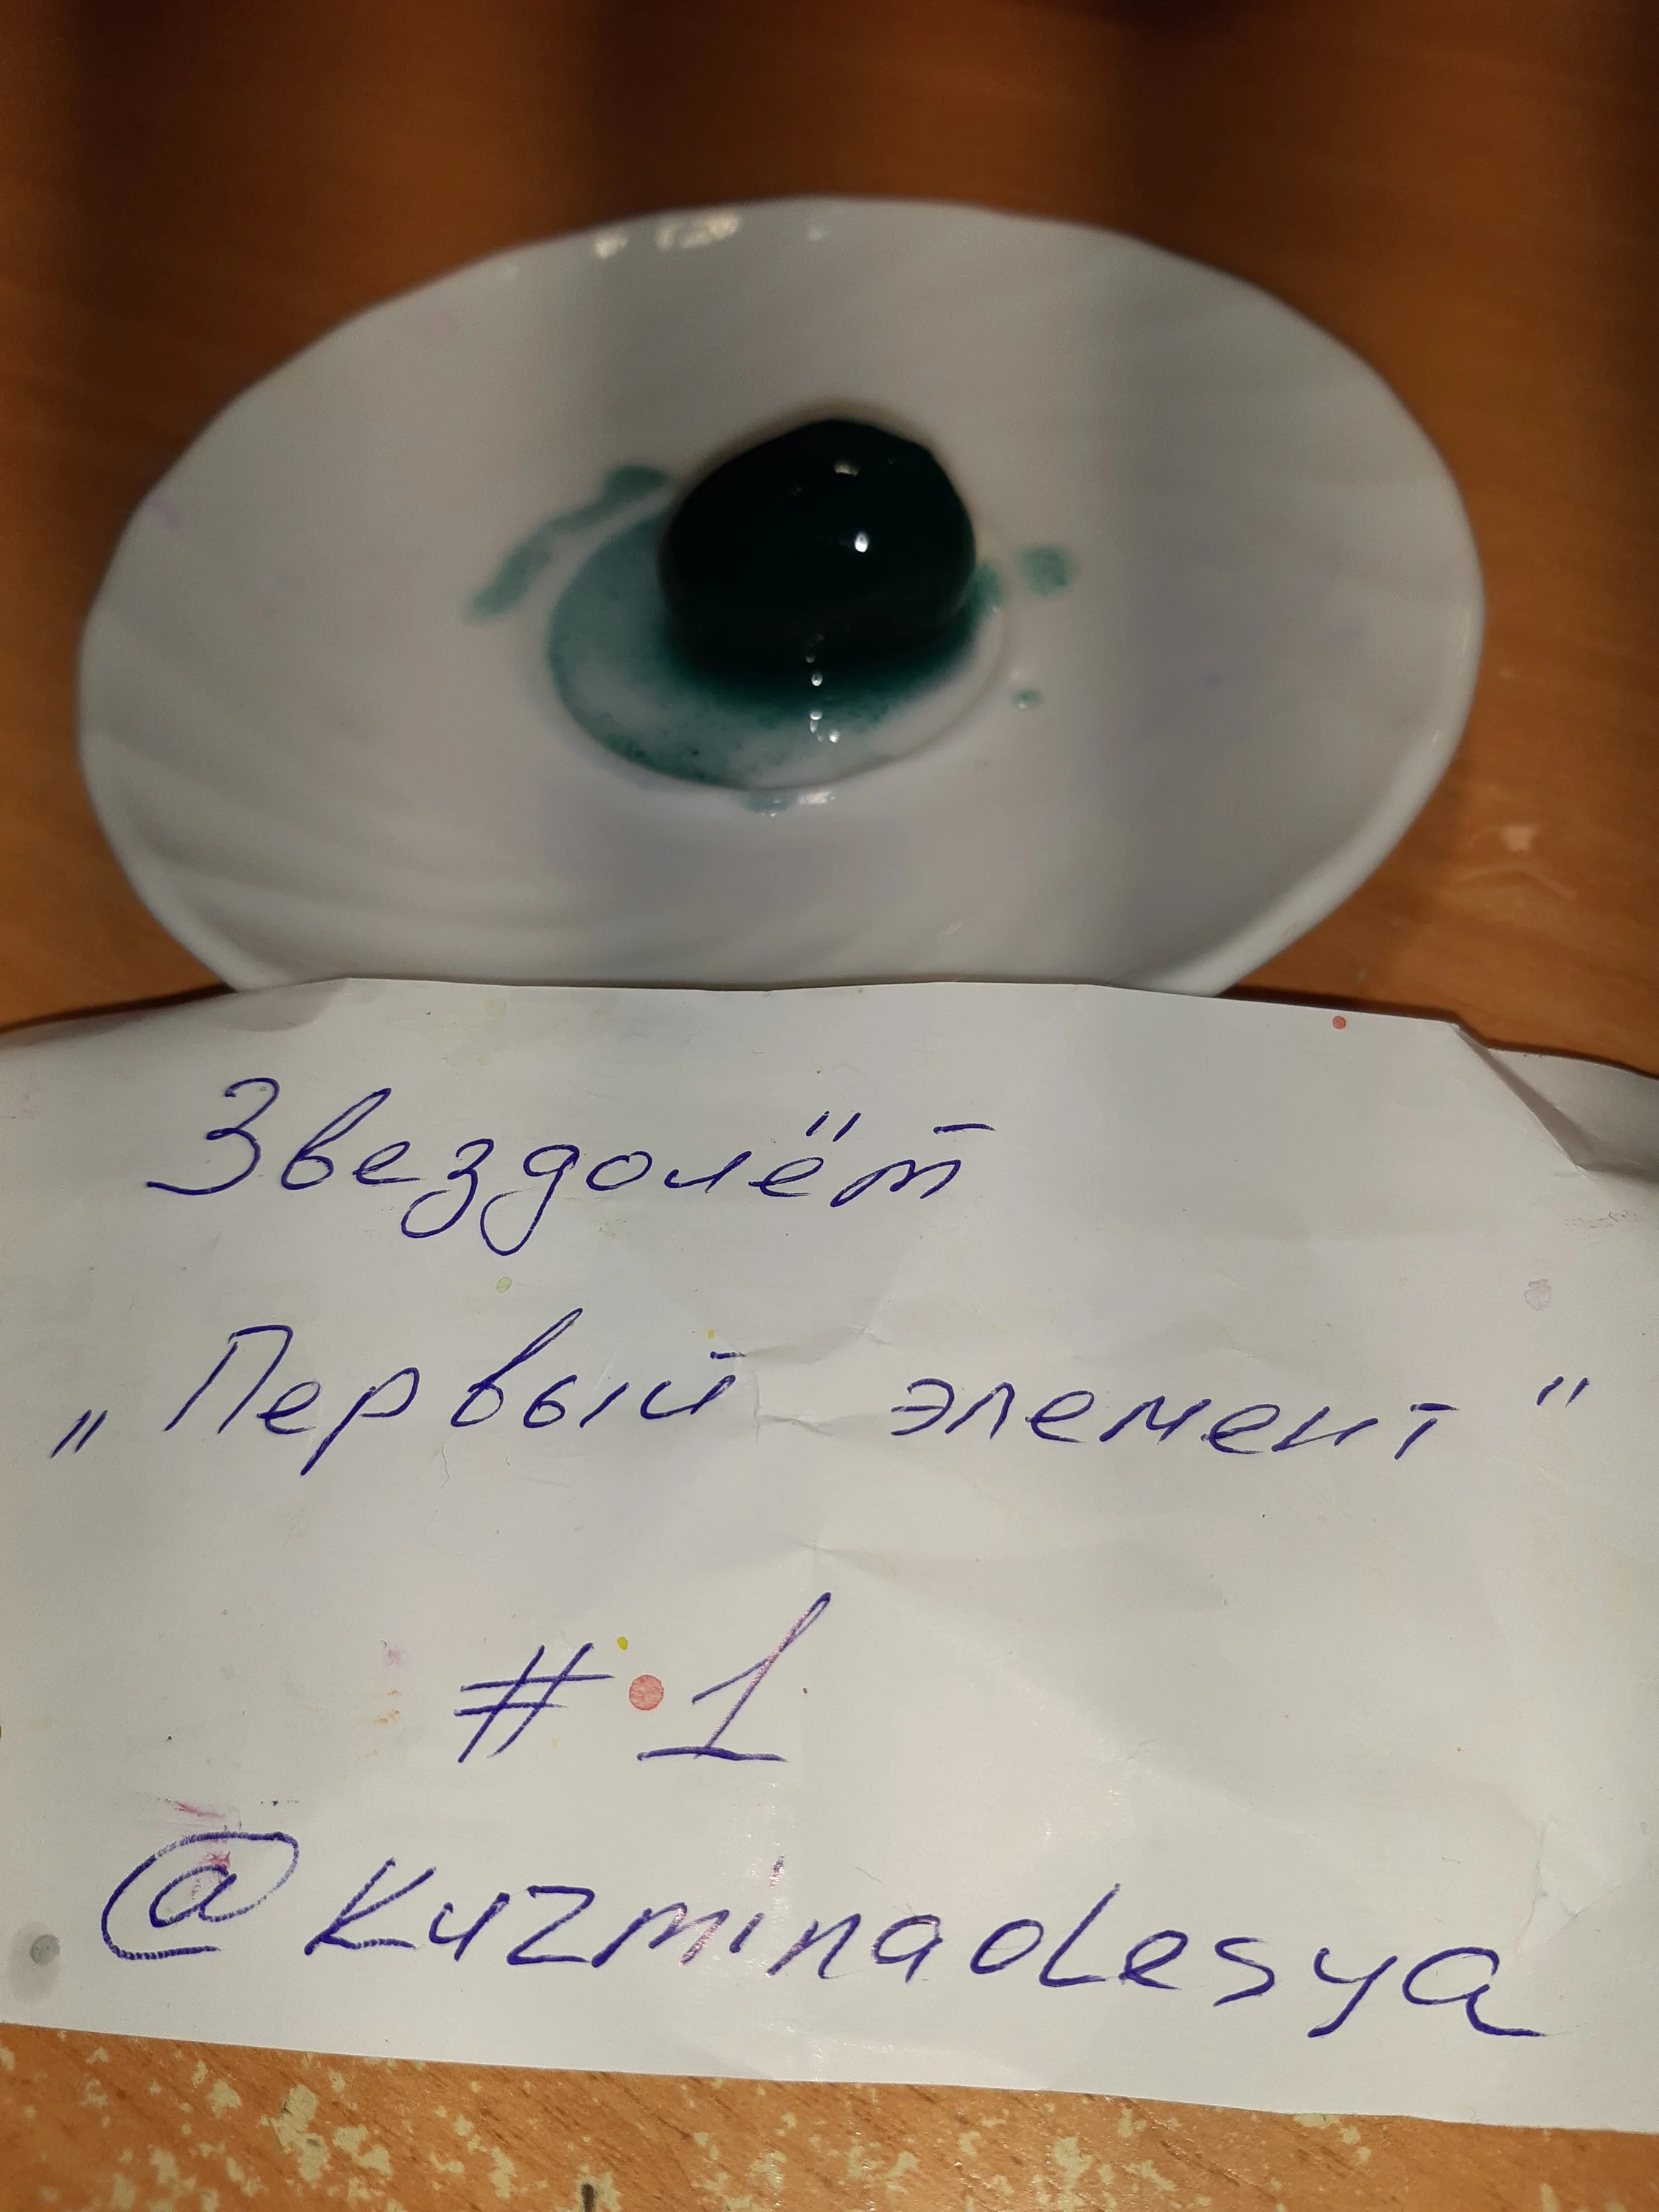 Звездолёт
„Первый элемент"
#1
@Kuzminaolesya